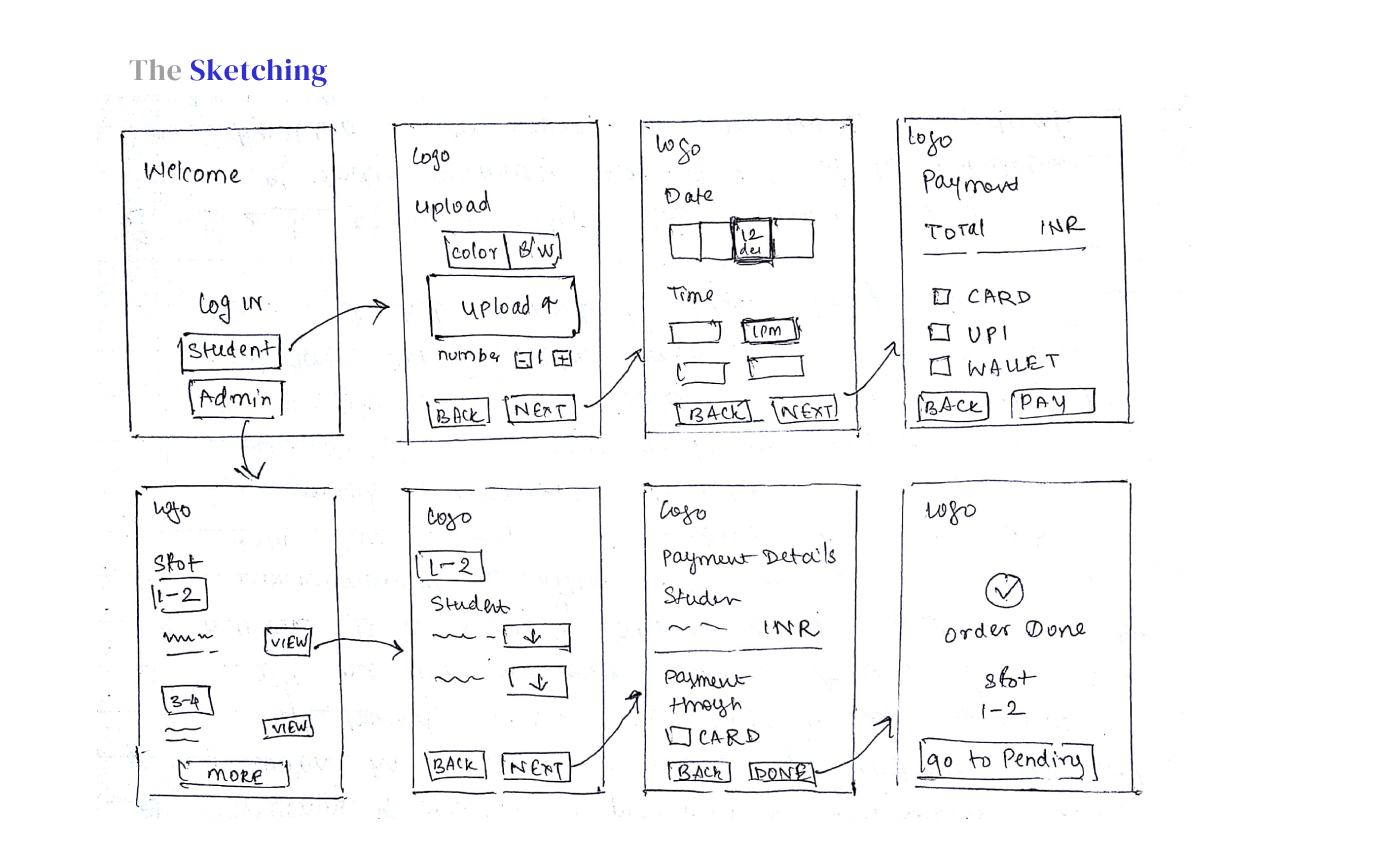 The Sketching
Welcome
Log IN
Student
Admin
Logo
Upload
Color B/W
Upload ↑
number - 1 +
BACK NEXT
Logo
Date
12
dec
Time
1pm
BACK NEXT
Logo
Payment
Total INR
CARD
UPI
WALLET
BACK PAY
Logo
Slot
1-2
VIEW
3-4
VIEW
MORE
Logo
1-2
Student
↓
↓
BACK NEXT
Logo
Payment Details
Studen
INR
Payment
through
CARD
BACK DONE
Logo
Order Done
Slot
1-2
go to Pending